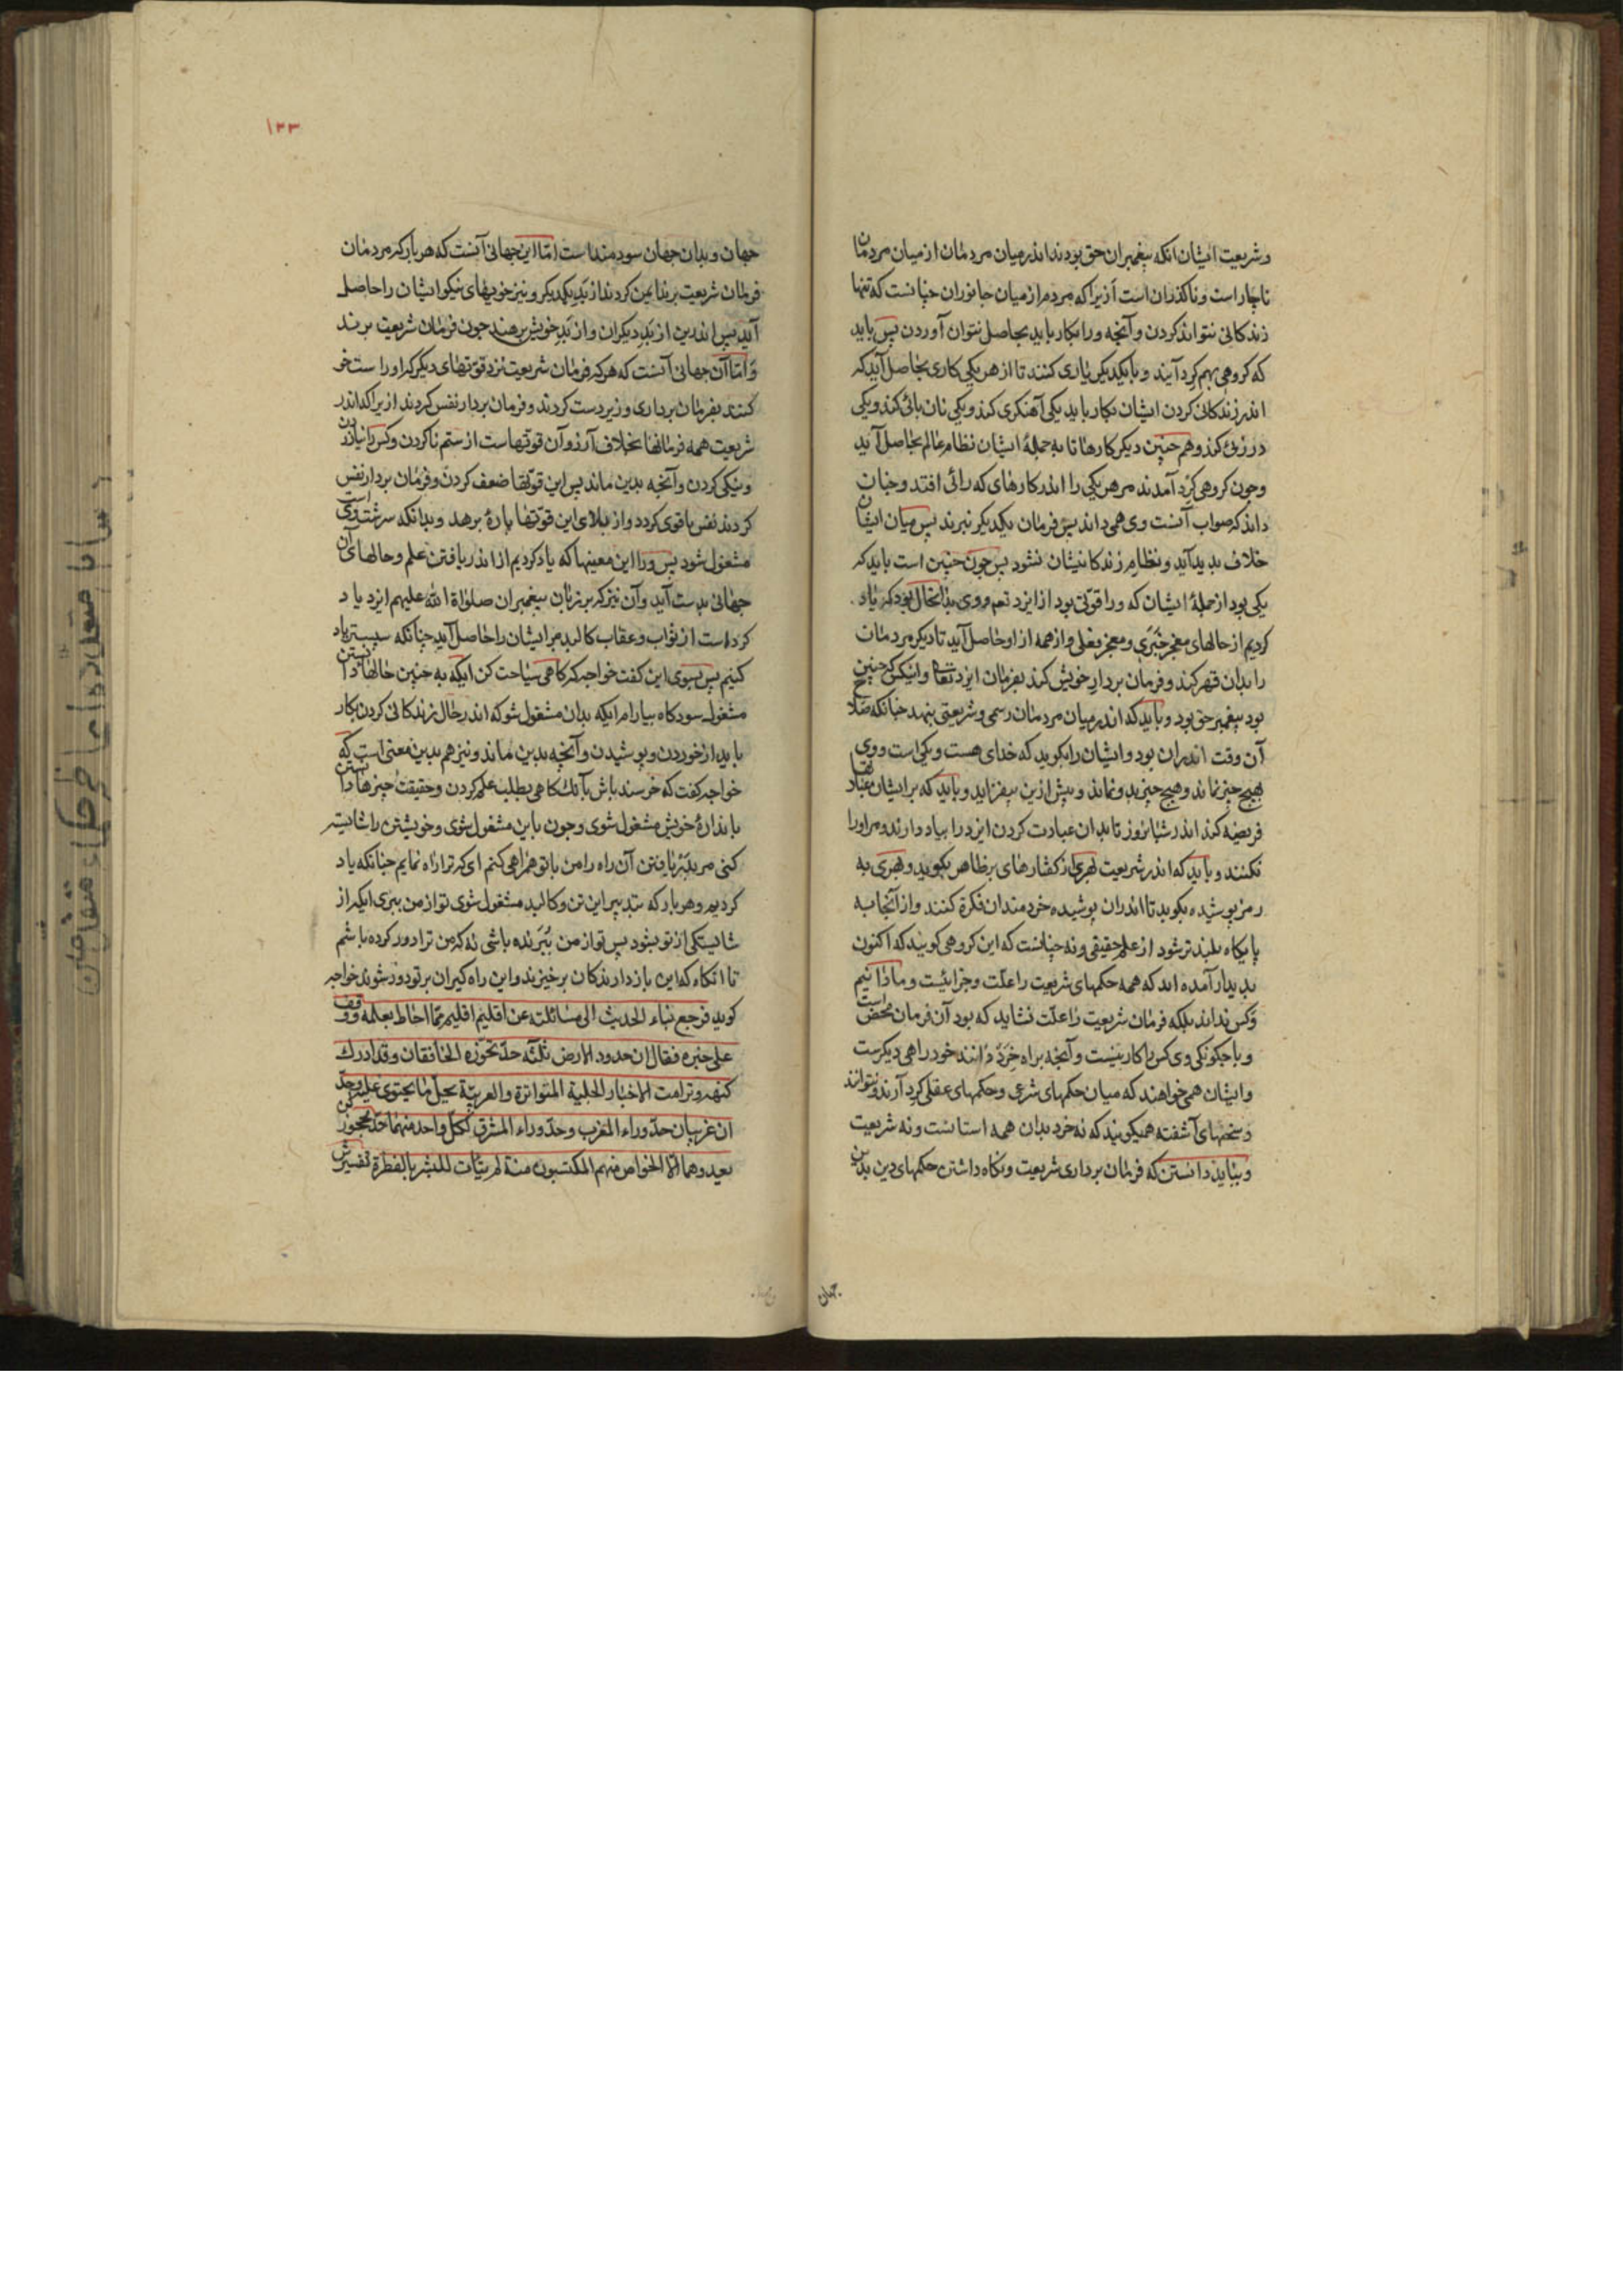 وشریعت ایشان آنکه پیغمبران حق بودند اندر میان مردمان از میان مردمان
ناچار است و ناگذران است ازیرا که مردم از میان جانوران چنانست که تنها
زندکانی نتواند کردن و آنچه ورا بکار باید بحاصل نتوان آوردن پس باید
که کروهی بهم کرد آیند و با یکدیکر یاری کنند تا از هر یکی کاری بحاصل آید که
اندر زندکانی کردن ایشان بکار باید یکی آهنکری کند و یکی نان بائی کند و یکی
درزئی کند و هم چنین دیکر کارها تا به جملهٔ ایشان نظام عالم بحاصل آید
وچون کروهی کرد آمدند مر هر یکی را اندر کارهای که رائی افتد وچنان
داند که صواب آنست وی همی داند پس فرمان یکدیکر نبرند پس میان ایشان
خلاف پدید آید و نظام زندکانیشان نشود پس چون چنین است باید که
یکی بود از جملهٔ ایشان که ورا قوّتی بود از ایزد تعم و وی بدانحال بود که یاد
کردیم از حالهای معجز خبری و معجز بفعلی و از همه از او حاصل آید تا دیکر مردمان
را بدان قهر کند و فرمان بردار خویش کند بفرمان ایزد تعالی و اینکس که چنین
بود پیغمبر حق بود و باید که اندر میان مردمان رسمی و شریعتی بنهد چنانکه صلاح
آن وقت اندران بود و ایشان را بکوید که خدای هست و یکی است و وی
بهیچ چیز نماند و هیچ چیز بدو نماند و بیش ازین نیفزاید و باید که بر ایشان عبادتها
فریضه کند اندر شبانروز تا بدان عبادت کردن ایزد را بیاد دارند و مر او را
نکنند و باید که اندر شریعت بهری از کفتارهای بر ظاهر بکوید و بهری به
رمز پوشیده بکوید تا اندران پوشیده خردمندان فکرة کنند و از آنجا به
پایکاه بلندتر شود از علم حقیقی و نه چنانست که این کروهی کویند که اکنون
پدیدار آمده اند که همه حکمهای شریعت را علّت و جزائیست و ما دانیم
و کس نداند بلکه فرمان شریعت را علّت نشاید که بود آن فرمان محض است
و با چکونکی وی کس را کار نیست و آنچه براه خرد دانند خود راهی دیکرست
وایشان همی خواهند که میان حکمهای شرعی و حکمهای عقلی کرد آرند و نتوانند
و سخنهای آشفته همیکویند که نه خرد بدان همه استانست و نه شریعت
و بباید دانستن که فرمان برداری شریعت و نکاه داشتن حکمهای دین بدین
جهان
۱۳۳
جهان و بدان جهان سودمند است امّا این جهانی آنست که هر بار که مردمان
فرمان شریعت برند ایمن کردند از بد یکدیکر و نیز خویهای نیکو ایشان را حاصل
آید پس اندرین از بد دیکران و از بد خویش برهند چون فرمان شریعت برند
و امّا آن جهانی آنست که هر که فرمان شریعت نزد قوتهای دیکر که او راست خو
کنند بفرمان برداری و زیردست کردند و فرمان بردار نفس کردند ازیرا که اندر
شریعت همه فرمانها بخلاف آرزو آن قوتهاست از ستم ناکردن و کس را نیازردن
و نیکی کردن و آنچه بدین ماند پس این قوّتها ضعف کردن و فرمان بردار نفس
کردند نفس با قوی کردد و از بلای این قوّتها پارهٔ برهد و بدانکه سرشت وی است
مشغول شود پس ورا این معینها که یاد کردیم از اندر یافتن علم و حالهای آن
جهانی بدست آید و آن نیز که بر زبان پیغمبران صلوٰاة الله علیهم ایزد یاد
کرداست از ثواب و عقاب کالبد مر ایشان را حاصل آید چنانکه سپستر یاد
کنیم پس بسوی این کفت خواجه که کاهی سیاحت کن ایکه به چنین حالها دانستن
مشغول سودکاه بیارام ایکه بدان مشغول شو که اندر حال زندکانی کردن بکار
باید از خوردن و پوشیدن و آنچه بدین ماند و نیز هم بدین معنی است که
خواجه کفت که خرسند باش بآنک کاهی بطلب علم کردن و حقیقت چیزها دانستن
باندازهٔ خویش مشغول شوی و چون باین مشغول شوی و خویشتن را شایسته
کنی مر یافتن آن راه را من با تو همراهی کنم ای که ترا راه نمایم چنانکه یاد
کردیم و هر بار که بتدبیر این تن و کالبد مشغول شوی تو از من ببری ایکه از
شایستکی از تو بشود پس تو از من برنده باشی نه که من ترا دور کرده باشم
تا انکاه که این بازدارندکان برخیزند و این راه کیران بر تو دور شوند خواجه
کوید فرجع بناء الحدیث الی مسائلته عن اقلیم اقلیم ممّا احاط بعلمه و وقف
علی خبره فقال ان حدود الارض ثلثة حدّ یحوزه الخافقان و قد ادرك
کنهه و ترامت الاخبار الجلیة المتواترة والغریبة بجلّ ما یحتوی علیه وحدّ
ان غریبان حدّ وراء المغرب وحدّ وراء المشرق لکلّ واحد منهما حدّ محجوز
بعید وهما الّا الخواص منهم المکتسبون منة لم یتأت للبشر بالفطرة تفسیرش